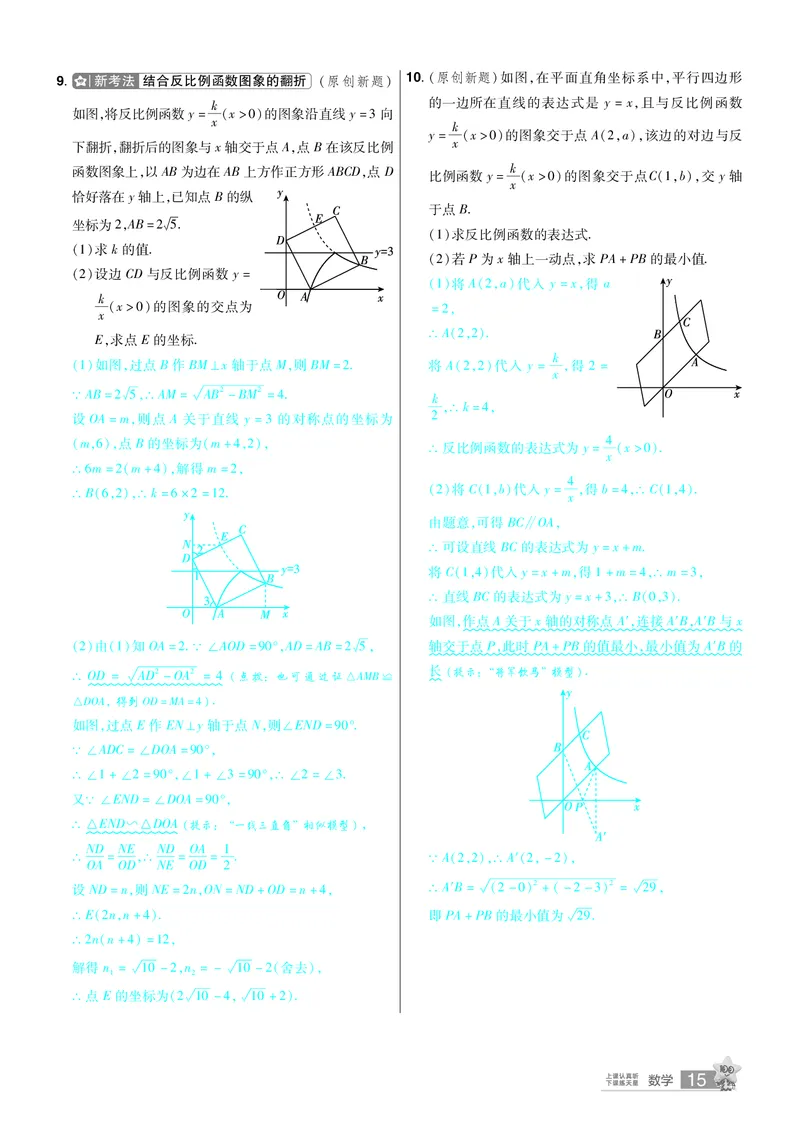 9. 新考法 结合反比例函数图象的翻折 (原创新题)
如图,将反比例函数 y=k/x(x>0)的图象沿直线 y=3 向
下翻折,翻折后的图象与 x 轴交于点 A,点 B 在该反比例
函数图象上,以 AB 为边在 AB 上方作正方形 ABCD,点 D
恰好落在 y 轴上,已知点 B 的纵
坐标为 2,AB=2√5.
(1)求 k 的值.
(2)设边 CD 与反比例函数 y=
k/x(x>0)的图象的交点为
E,求点 E 的坐标.
y
C
E
D
y=3
B
O A x
(1)如图,过点 B 作 BM⊥x 轴于点 M,则 BM=2.
∵AB=2√5,∴AM=√(AB²-BM²)=4.
设 OA=m,则点 A 关于直线 y=3 的对称点的坐标为
(m,6),点 B 的坐标为(m+4,2),
∴6m=2(m+4),解得 m=2,
∴B(6,2),∴k=6×2=12.
y
C
E
N
2
D
y=3
1
B
3
O A M x
(2)由(1)知 OA=2.∵∠AOD=90°,AD=AB=2√5,
∴OD=√(AD²-OA²)=4(点拨:也可通过证△AMB≌
△DOA,得到 OD=MA=4).
如图,过点 E 作 EN⊥y 轴于点 N,则∠END=90°.
∵∠ADC=∠DOA=90°,
∴∠1+∠2=90°,∠1+∠3=90°,∴∠2=∠3.
又∵∠END=∠DOA=90°,
∴△END∽△DOA(提示:“一线三直角”相似模型),
∴ND/OA=NE/OD,∴ND/NE=OA/OD=1/2.
设 ND=n,则 NE=2n,ON=ND+OD=n+4,
∴E(2n,n+4).
∴2n(n+4)=12,
解得 n₁=√10-2,n₂=-√10-2(舍去),
∴点 E 的坐标为(2√10-4,√10+2).
10. (原创新题)如图,在平面直角坐标系中,平行四边形
的一边所在直线的表达式是 y=x,且与反比例函数
y=k/x(x>0)的图象交于点 A(2,a),该边的对边与反
比例函数 y=k/x(x>0)的图象交于点C(1,b),交 y 轴
于点 B.
(1)求反比例函数的表达式.
(2)若 P 为 x 轴上一动点,求 PA+PB 的最小值.
(1)将 A(2,a)代入 y=x,得 a
=2,
∴A(2,2).
将 A(2,2)代入 y=k/x,得 2=
k/2,∴k=4,
y
C
B
A
O x
∴反比例函数的表达式为 y=4/x(x>0).
(2)将 C(1,b)代入 y=4/x,得 b=4,∴C(1,4).
由题意,可得 BC∥OA,
∴可设直线 BC 的表达式为 y=x+m.
将 C(1,4)代入 y=x+m,得 1+m=4,∴m=3,
∴直线 BC 的表达式为 y=x+3,∴B(0,3).
如图,作点 A 关于 x 轴的对称点 A′,连接 A′B,A′B 与 x
轴交于点 P,此时 PA+PB 的值最小,最小值为 A′B 的
长(提示:“将军饮马”模型).
y
C
B
A
O P x
A′
∵A(2,2),∴A′(2,-2),
∴A′B=√((2-0)²+(-2-3)²)=√29,
即 PA+PB 的最小值为√29.
上课认真听
下课练天星
数学 15